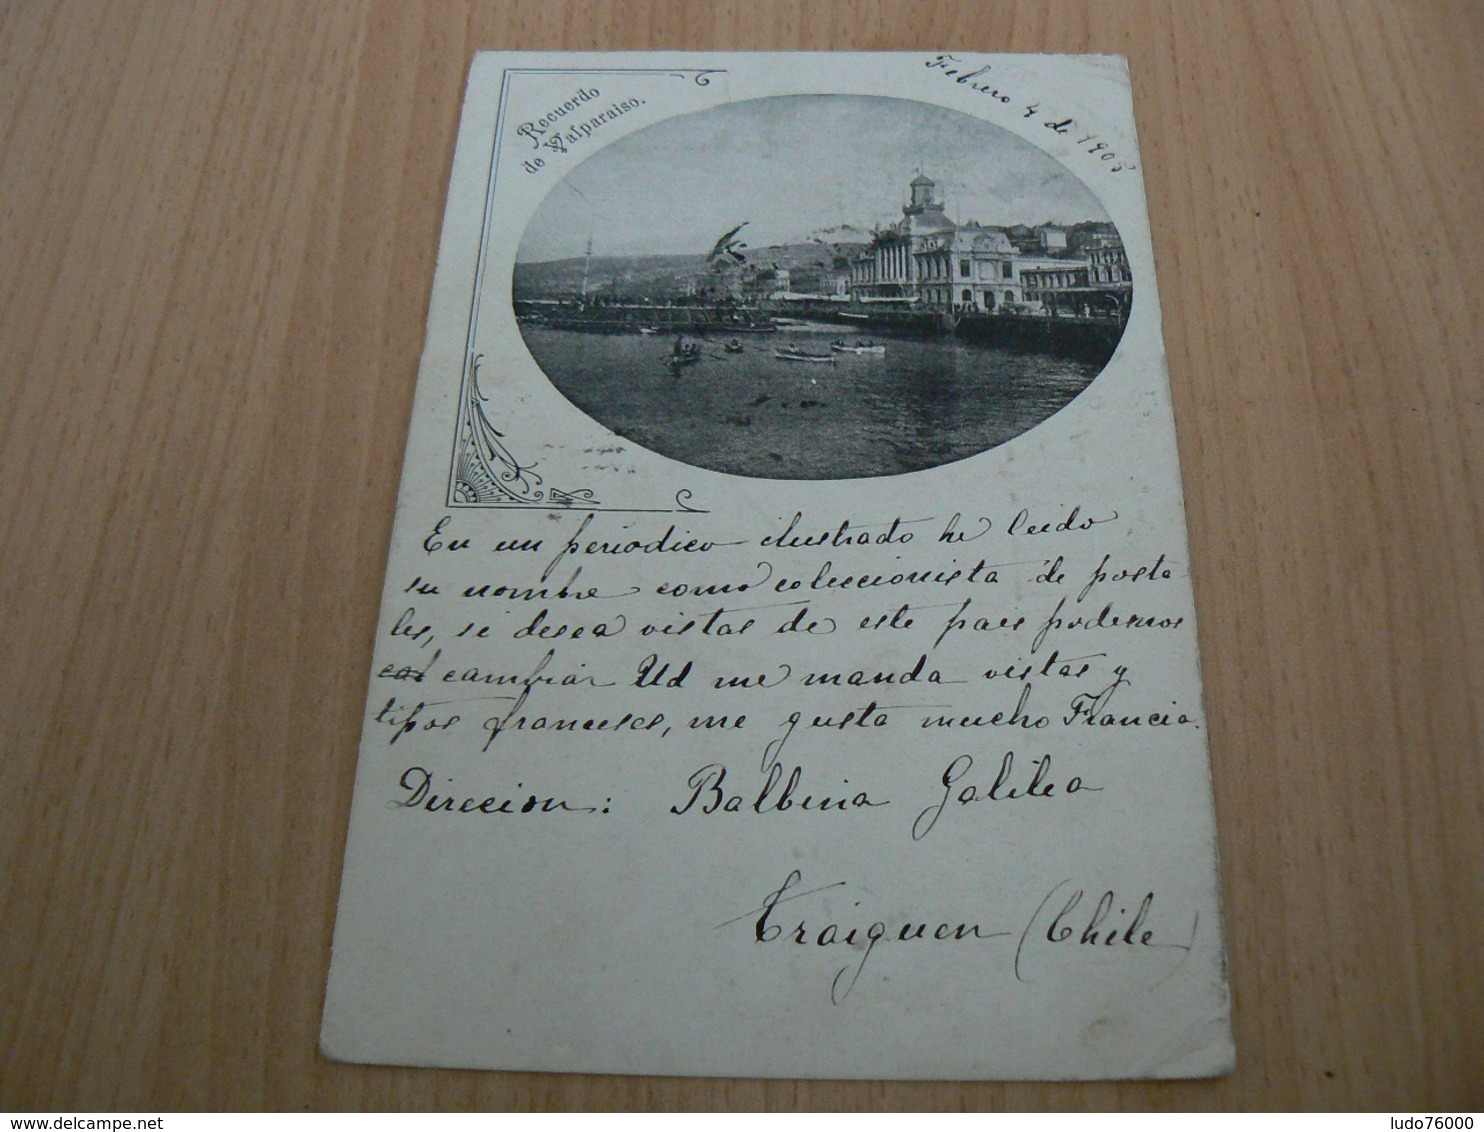 Recuerdo
de Valparaiso.
Febrero 4 de 1905
En un periodico ilustrado he leido
su nombre como coleccionista de posta
les, si desea vistas de este pais podemos
cambiar Ud me manda vistas y
tipos franceses, me gusta mucho Francia.
Direccion: Balbina Galilea
Traiguen (Chile)
delcampe.net
ludo76000